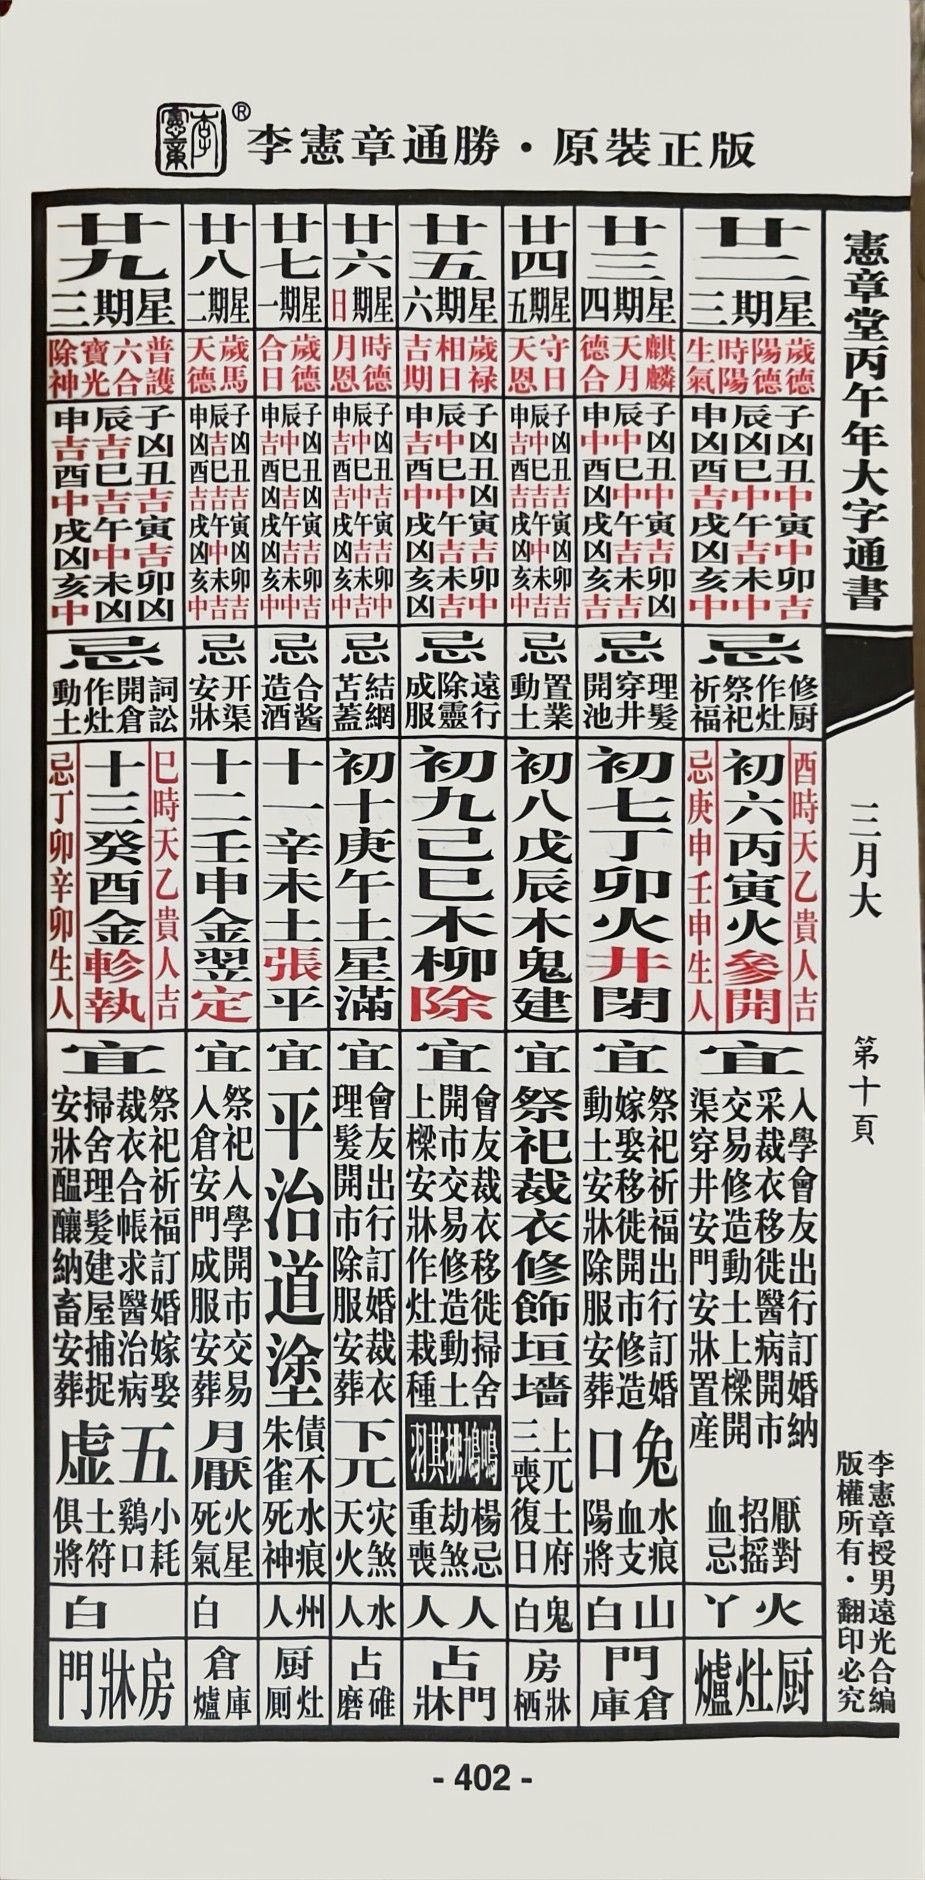 李憲章®
李憲章通勝・原裝正版
憲章堂丙午年大字通書
三月大
第十頁
李憲章授男遠光合編
版權所有・翻印必究
廿二
星期三
歲德 陽德 時陽 生氣
子凶丑中寅中卯吉
辰凶巳中午吉未中
申凶酉吉戌凶亥中
忌
修厨 作灶 祭祀 祈福
酉時天乙貴人吉
初六丙寅火參開
忌庚申壬申生人
宜
入學會友出行訂婚納
采裁衣移徙醫病開市
交易修造動土上樑開
渠穿井安門安牀置産
厭對 招搖 血忌
火丫
厨灶爐
廿三
星期四
麒麟 天月 德合
子凶丑凶寅吉卯凶
辰中巳中午吉未吉
申中酉凶戌凶亥吉
忌
理髮 穿井 開池
初七丁卯火井閉
宜
祭祀祈福出行訂婚
嫁娶移徙開市修造
動土安牀除服安葬
兔口
水痕 血支 陽將
山白
門
倉庫
廿四
星期五
守日 天恩
忌
置業 動土
初八戊辰木鬼建
宜
祭祀裁衣修飾垣墻
上兀 三喪
土府 復日
鬼白
房
牀栖
廿五
星期六
歲禄 相日 吉期
子凶丑凶寅吉卯中
辰中巳中午吉未吉
申吉酉中戌凶亥凶
忌
遠行 除靈 成服
初九己巳木柳除
宜
會友裁衣移徙掃舍
開市交易修造動土
上樑安牀作灶栽種
鳴鳩拂其羽
楊忌 劫煞 重喪
人人
占
門牀
廿六
星期日
時德 月恩
忌
結網 苫蓋
初十庚午土星滿
宜
會友出行訂婚裁衣
理髮開市除服安葬
下兀
灾煞 天火
水人
占
碓磨
廿七
星期一
歲德 合日
忌
合酱 造酒
十一辛未土張平
宜
平治道塗
債不 朱雀
水痕 死神
州人
厨
灶厠
廿八
星期二
歲馬 天德
忌
开渠 安牀
十二壬申金翌定
宜
祭祀入學開市交易
入倉安門成服安葬
月厭
火星 死氣
白
倉
庫爐
廿九
星期三
普護 六合 寶光 除神
子凶丑吉寅吉卯凶
辰吉巳吉午中未凶
申吉酉中戌凶亥中
忌
詞訟 開倉 作灶 動土
巳時天乙貴人吉
十三癸酉金軫執
忌丁卯辛卯生人
宜
祭祀祈福訂婚嫁娶
裁衣合帳求醫治病
掃舍理髮建屋捕捉
安牀醞釀納畜安葬
五虛
小耗 鷄口 土符 俱將
白
房牀門
- 402 -